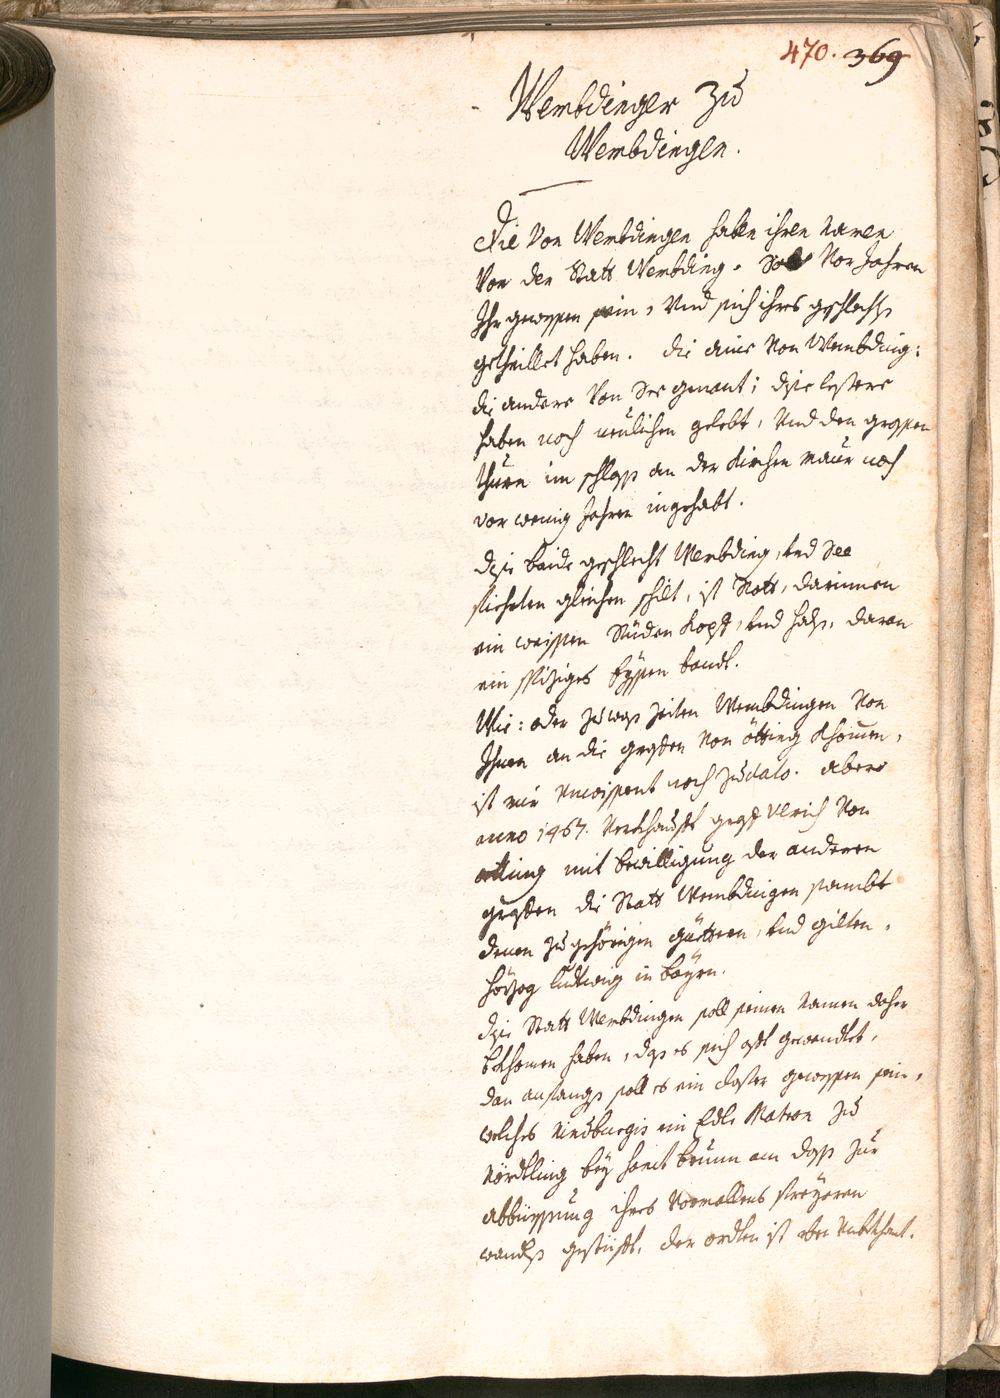 470. 369
Wembdinger zu
Wembdingen.
Die von Wembdingen haben ihren namen
von der Statt Wembding. So vor Jahren
Ihr gewesen sein, und sich ihres geschlechts
getheillet haben. die aine von Wembding:
die andere von See genant; dise lestere
haben noch neulichen gelebt, und den grossen
thurn im schloss an der Kirchen maur noch
vor wenig Jahren ingehabt.
dise baide geschlecht Wembding, und See
fiehrten gleichen schilt, ist Rott, darinnen
ein weissen Rüden Kopf, und halss, daran
ein spiziges Eyssen bandt.
Wie: oder zu was zeiten Wembdingen von
Ihnen an die grafen von ötting khomen,
ist mir unwissent noch zu dato. aber
anno 1467. verkhaufft graf Ulrich von
otting mit bewilligung der anderen
grafen die Statt Wembdingen sambt
denen zugehörigen güettern, und gilten,
Hörzog Ludwig in bayrn.
dise Statt Wembdingen soll seinen namen daher
bekhomen haben, das es sich offt gewendtet,
dan anfangs soll es ein closter gewessen sein,
welches Windburgis ein Edle Matron zu
Nördtling bey Sanct brunn am zur
abbüessung ihres vormallens
gestüfft, der orden ist aber unbekhant.